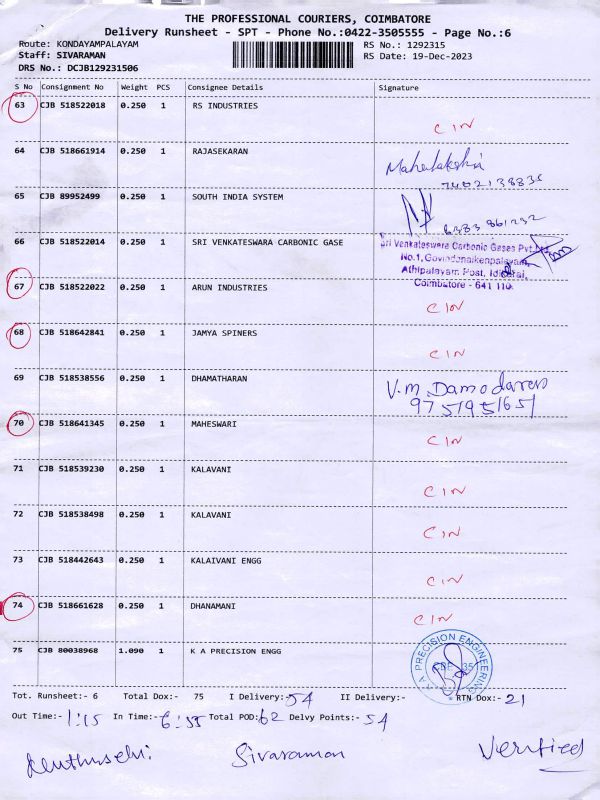 THE PROFESSIONAL COURIERS, COIMBATORE
Delivery Runsheet - SPT - Phone No.:0422-3505555 - Page No.:6
Route: KONDAYAMPALAYAM RS No.: 1292315
Staff: SIVARAMAN RS Date: 19-Dec-2023
DRS No.: DCJB129231506
S No Consignment No Weight PCS Consignee Details Signature
63 CJB 518522018 0.250 1 RS INDUSTRIES
CIN
64 CJB 518661914 0.250 1 RAJASEKARAN
65 CJB 89952499 0.250 1 SOUTH INDIA SYSTEM
6383 861232
66 CJB 518522014 0.250 1 SRI VENKATESWARA CARBONIC GASE
Sri Venkateswara Carbonic Gases Pvt Ltd
No.1, Govindanaikenpalayam,
Athipalayam Post, Idikarai,
Coimbatore - 641 110.
67 CJB 518522022 0.250 1 ARUN INDUSTRIES
CIN
68 CJB 518642841 0.250 1 JAMYA SPINERS
CIN
69 CJB 518538556 0.250 1 DHAMATHARAN
V.M. Damodaren
9751951651
70 CJB 518641345 0.250 1 MAHESWARI
CIN
71 CJB 518539230 0.250 1 KALAVANI
CIN
72 CJB 518538498 0.250 1 KALAVANI
CIN
73 CJB 518442643 0.250 1 KALAIVANI ENGG
CIN
74 CJB 518661628 0.250 1 DHANAMANI
CIN
75 CJB 80038968 1.090 1 K A PRECISION ENGG
K A PRECISION ENGINEERING
CBE 35
Tot. Runsheet:- 6 Total Dox:- 75 I Delivery:- 54 II Delivery:- RTN Dox:- 21
Out Time:- 1:15 In Time:- 6:55 Total POD: 62 Delvy Points:- 54
Sivaraman Verified